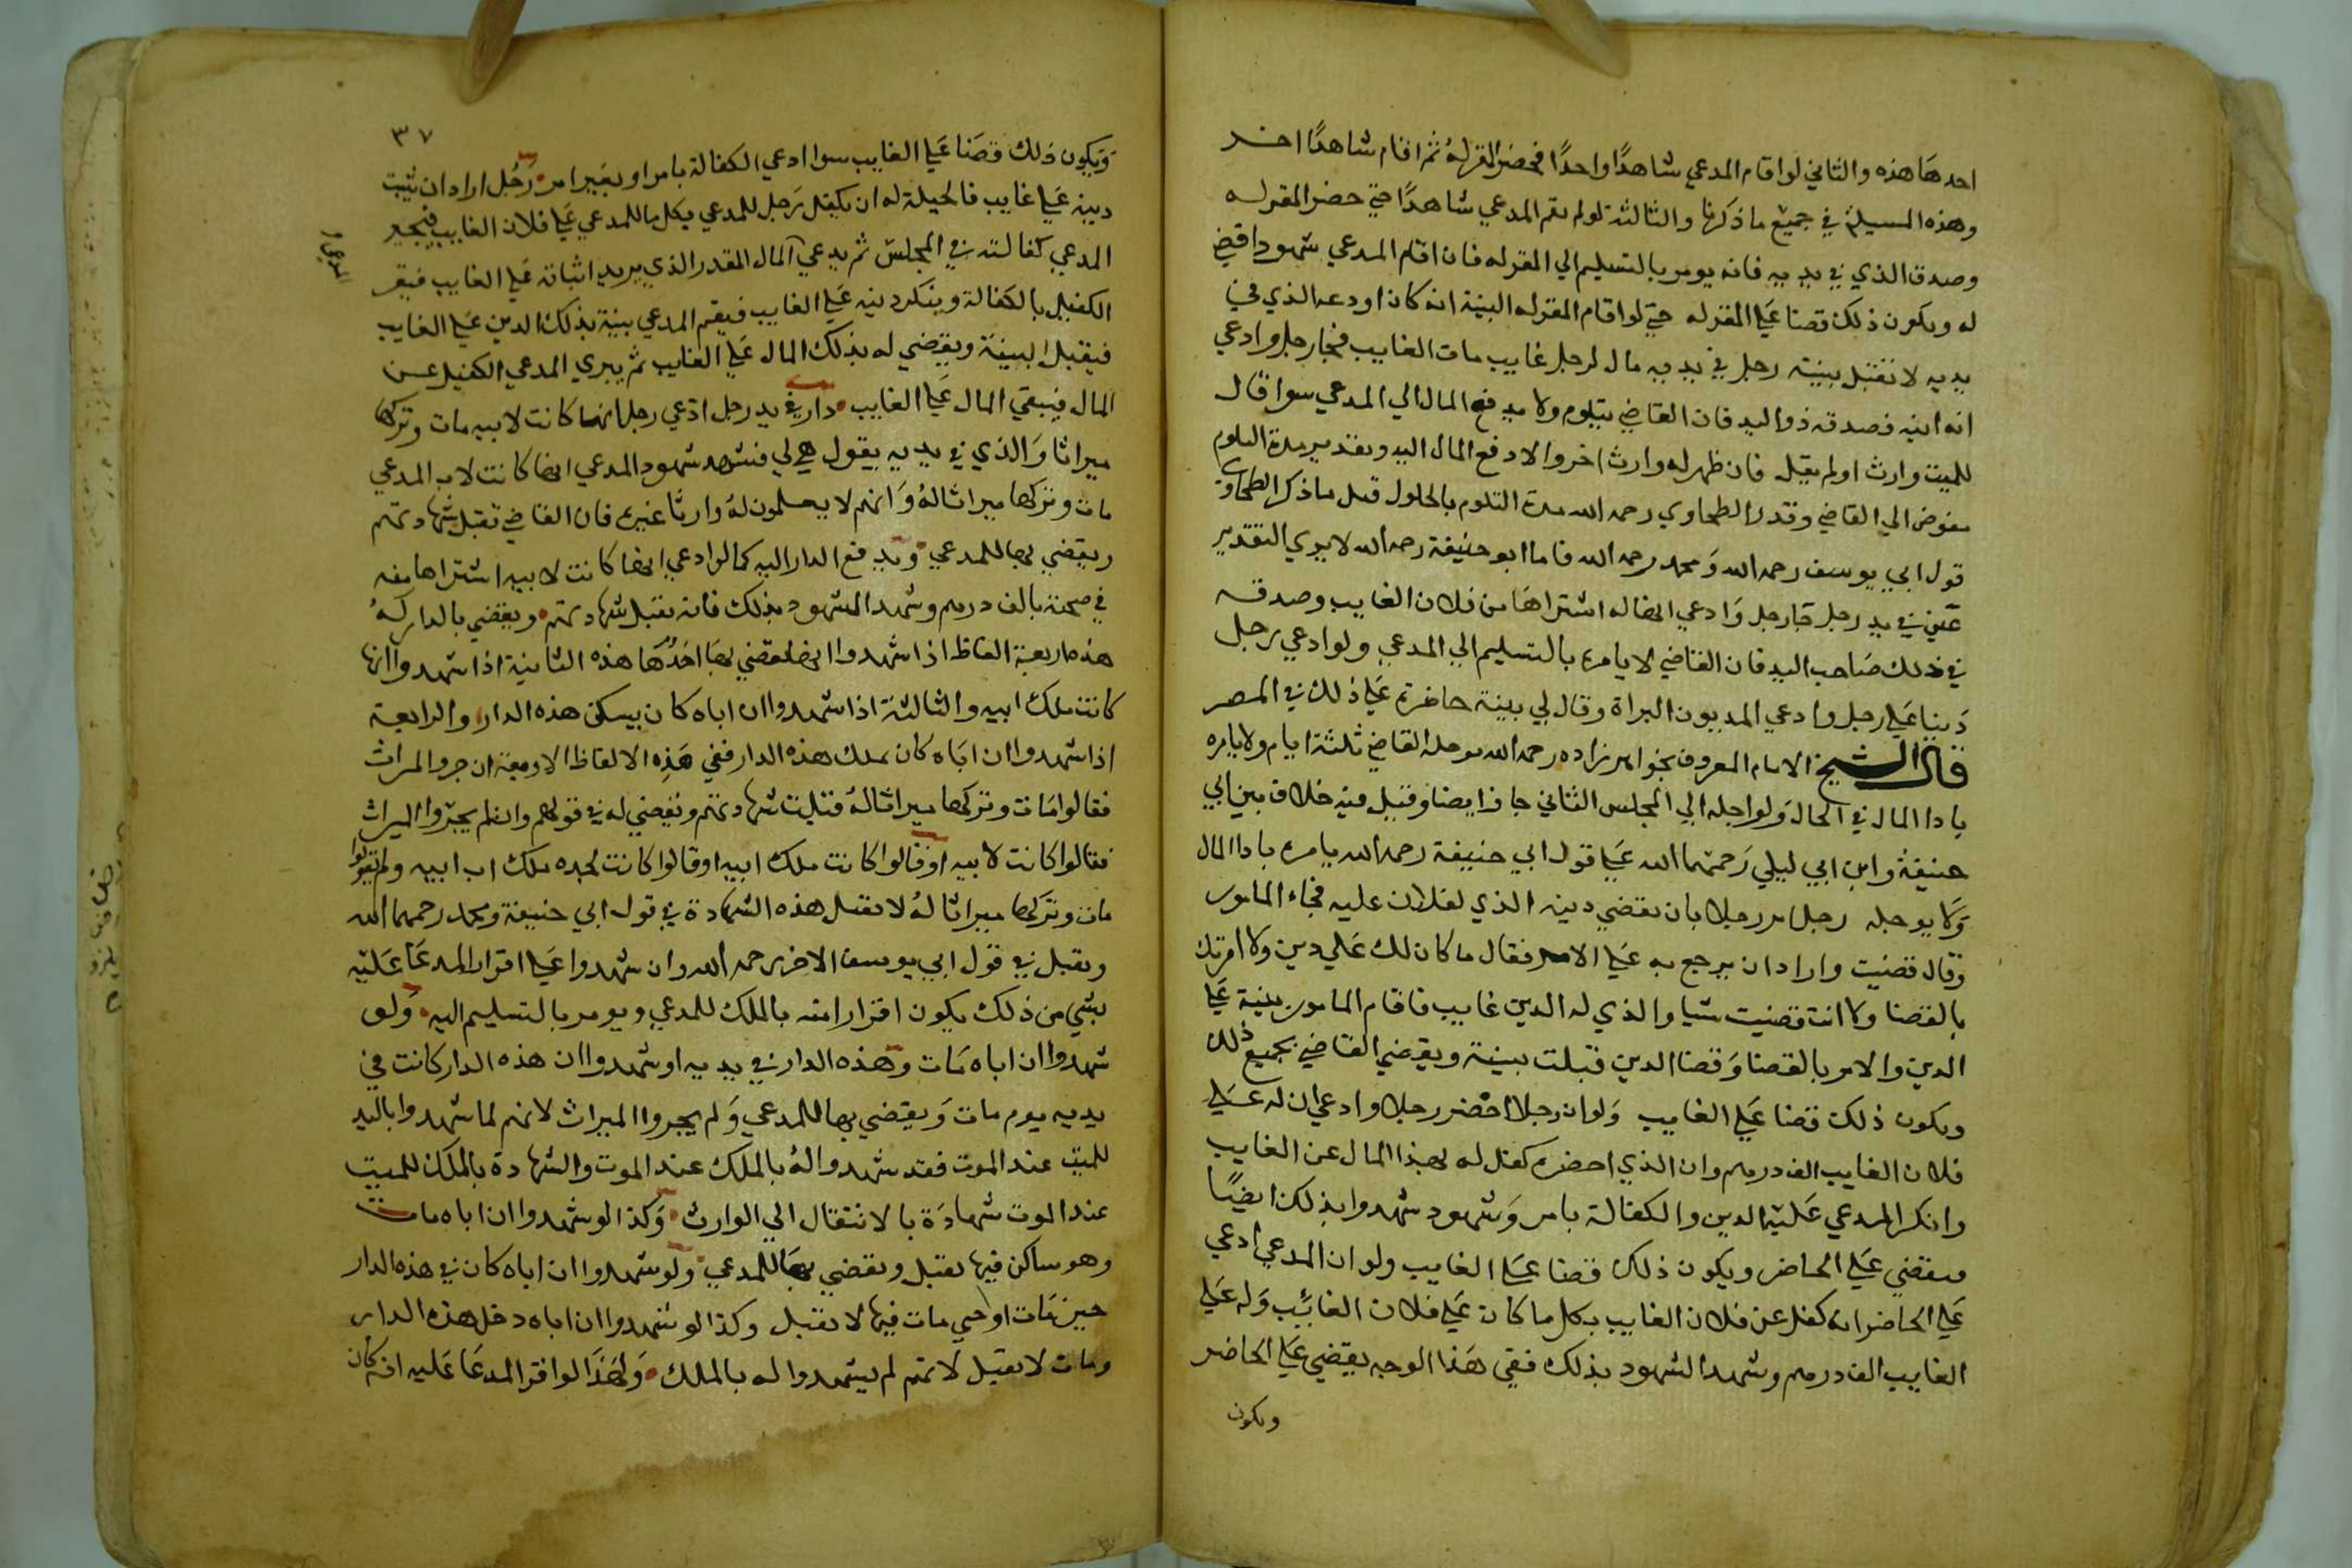 احدها هذه والثاني لو اقام المدعي شاهدًا واحدًا فحضر المقر له ثم اقام شاهدًا اخر
وهذه المسيلة في جميع ما ذكرنا والثالثة لو لم يقم المدعي شاهدًا حتي حضر المقر له
وصدق الذي في يديه فانه يومر بالتسليم الي المقر له فان اقام المدعي شهودا قضي
له ويكون ذلك قضا علي المقر له حتي لو اقام المقر له البينة انه كان اودعه الذي في
يديه لا تقبل بينته رجل في يديه مال لرجل غايب مات الغايب فجا رجل وادعي
انه ابنه فصدقه ذو اليد فان القاضي يتلوم ولا يدفع المال الي المدعي سوا قال
للميت وارث او لم يقل فان ظهر له وارث اخر والا دفع المال اليه وتقدير مدة التلوم
مفوض الي القاضي وقدر الطحاوي رحمه الله مدة التلوم بالحلول قيل ما ذكر الطحاوي
قول ابي يوسف رحمه الله ومحمد رحمه الله فاما ابو حنيفة رحمه الله لا يري التقدير
عين في يد رجل جا رجل وادعي انها له اشتراها من فلان الغايب وصدقه
في ذلك صاحب اليد فان القاضي لا يامره بالتسليم الي المدعي ولو ادعي رجل
دينا علي رجل وادعي المديون البراة وقال لي بينة حاضرة علي ذلك في المصر
قال الشيخ الامام المعروف بخواهر زاده رحمه الله يوجله القاضي ثلثة ايام ولا يامره
بادا المال في الحال ولو اجله الي المجلس الثاني جاز ايضا وقيل فيه خلاف بين ابي
حنيفة وابن ابي ليلي رحمهما الله علي قول ابي حنيفة رحمه الله يامره بادا المال
ولا يوجله رجل امر رجلا بان يقضي دينه الذي لفلان عليه فجاء المامور
وقال قضيت واراد ان يرجع به علي الامر فقال ما كان لك علي دين ولا امرتك
بالقضا ولا انت قضيت شيا والذي له الدين غايب فاقام المامور بينة علي
الدين والامر بالقضا وقضا الدين قبلت بينته ويقضي القاضي بجميع ذلك
ويكون ذلك قضا علي الغايب ولو ان رجلا احضر رجلا وادعي ان له علي
فلان الغايب الف درهم وان الذي احضره كفل له بهذا المال عن الغايب
وانكر المدعي عليه الدين والكفالة بامر وشهود شهدوا بذلك ايضًا
فيقضي علي الحاضر ويكون ذلك قضا علي الغايب ولو ان المدعي ادعي
علي الحاضر انه كفل عن فلان الغايب بكل ما كان علي فلان الغائب وله علي
الغايب الف درهم وشهد الشهود بذلك ففي هذا الوجه يقضي علي الحاضر
ويكون
٣٧
ويكون ذلك قضا علي الغايب سوا ادعي الكفالة بامر او بغير امر رجل اراد ان يثبت
دينه علي غايب فالحيلة له ان يكفل رجل للمدعي بكل ما للمدعي علي فلان الغايب فيجيز
المدعي كفالته في المجلس ثم يدعي المال المقدر الذي يريد اثباته علي الغايب فيقر
الكفيل بالكفالة وينكر دينه علي الغايب فيقم المدعي بينة بذلك الدين علي الغايب
فيقبل البينة ويقضي له بذلك المال علي الغايب ثم يبري المدعي الكفيل عن
المال فيبقي المال علي الغايب دار في يد رجل ادعي رجل انها كانت لابيه مات وتركها
ميراثا والذي في يديه يقول هي لي فشهد شهود المدعي انها كانت لاب المدعي
مات وتركها ميراثا له وانهم لا يعلمون له وارثا غيره فان القاضي تقبل شهادتهم
ويقضي بها للمدعي ويدفع الدار اليه كما لو ادعي انها كانت لابيه اشتراها منه
في صحته بالف درهم وشهد الشهود بذلك فانه تقبل شهادتهم ويقضي بالدار له
هذه اربعة الفاظ اذا شهدوا انها يقضي بها احدها هذه الثانية اذا شهدوا انها
كانت ملك ابيه والثالثة اذا شهدوا ان اباه كان يسكن هذه الدار والرابعة
اذا شهدوا ان اباه كان يملك هذه الدار ففي هذه الالفاظ الاربعة ان جروا الميراث
فقالوا مات وتركها ميراثا له قبلت شهادتهم ونقضي له في قولهم وان لم يجروا الميراث
فقالوا كانت لابيه او قالوا كانت ملك ابيه او قالوا كانت لجده ملك اب ابيه ولم يقولوا
مات وتركها ميراثا له لا تقبل هذه الشهادة في قول ابي حنيفة ومحمد رحمهما الله
وتقبل في قول ابي يوسف الاخر رحمه الله وان شهدوا علي اقرار المدعا عليه
بشي من ذلك يكون اقرارا منه بالملك للمدعي ويومر بالتسليم اليه ولو
شهدوا ان اباه مات وهذه الدار في يديه او شهدوا ان هذه الدار كانت في
يديه يوم مات ويقضي بها للمدعي ولم يجروا الميراث لانهم لما شهدوا باليد
للميت عند الموت فقد شهدوا له بالملك عند الموت والشهادة بالملك للميت
عند الموت شهادة بالانتقال الي الوارث وكذا لو شهدوا ان اباه مات
وهو ساكن فيها تقبل ويقضي بها للمدعي ولو شهدوا ان اباه كان في هذه الدار
حين مات او حي مات فيها لا تقبل وكذا لو شهدوا ان اباه دخل هذه الدار
ومات لا تقبل لانهم لم يشهدوا له بالملك ولهذا لو اقر المدعا عليه انه كان